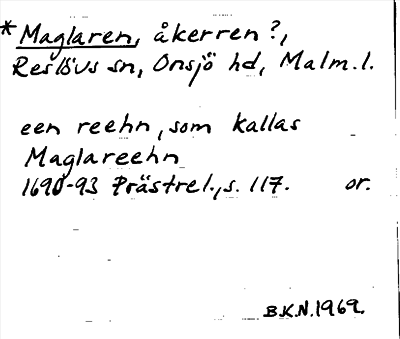 *Maglaren, åkerren ?,
Reslövs sn, Onsjö hd, Malm.l.
een reehn, som kallas
Maglareehn
1690-93 Prästrel., s. 117. or.
B.K.N. 1969.